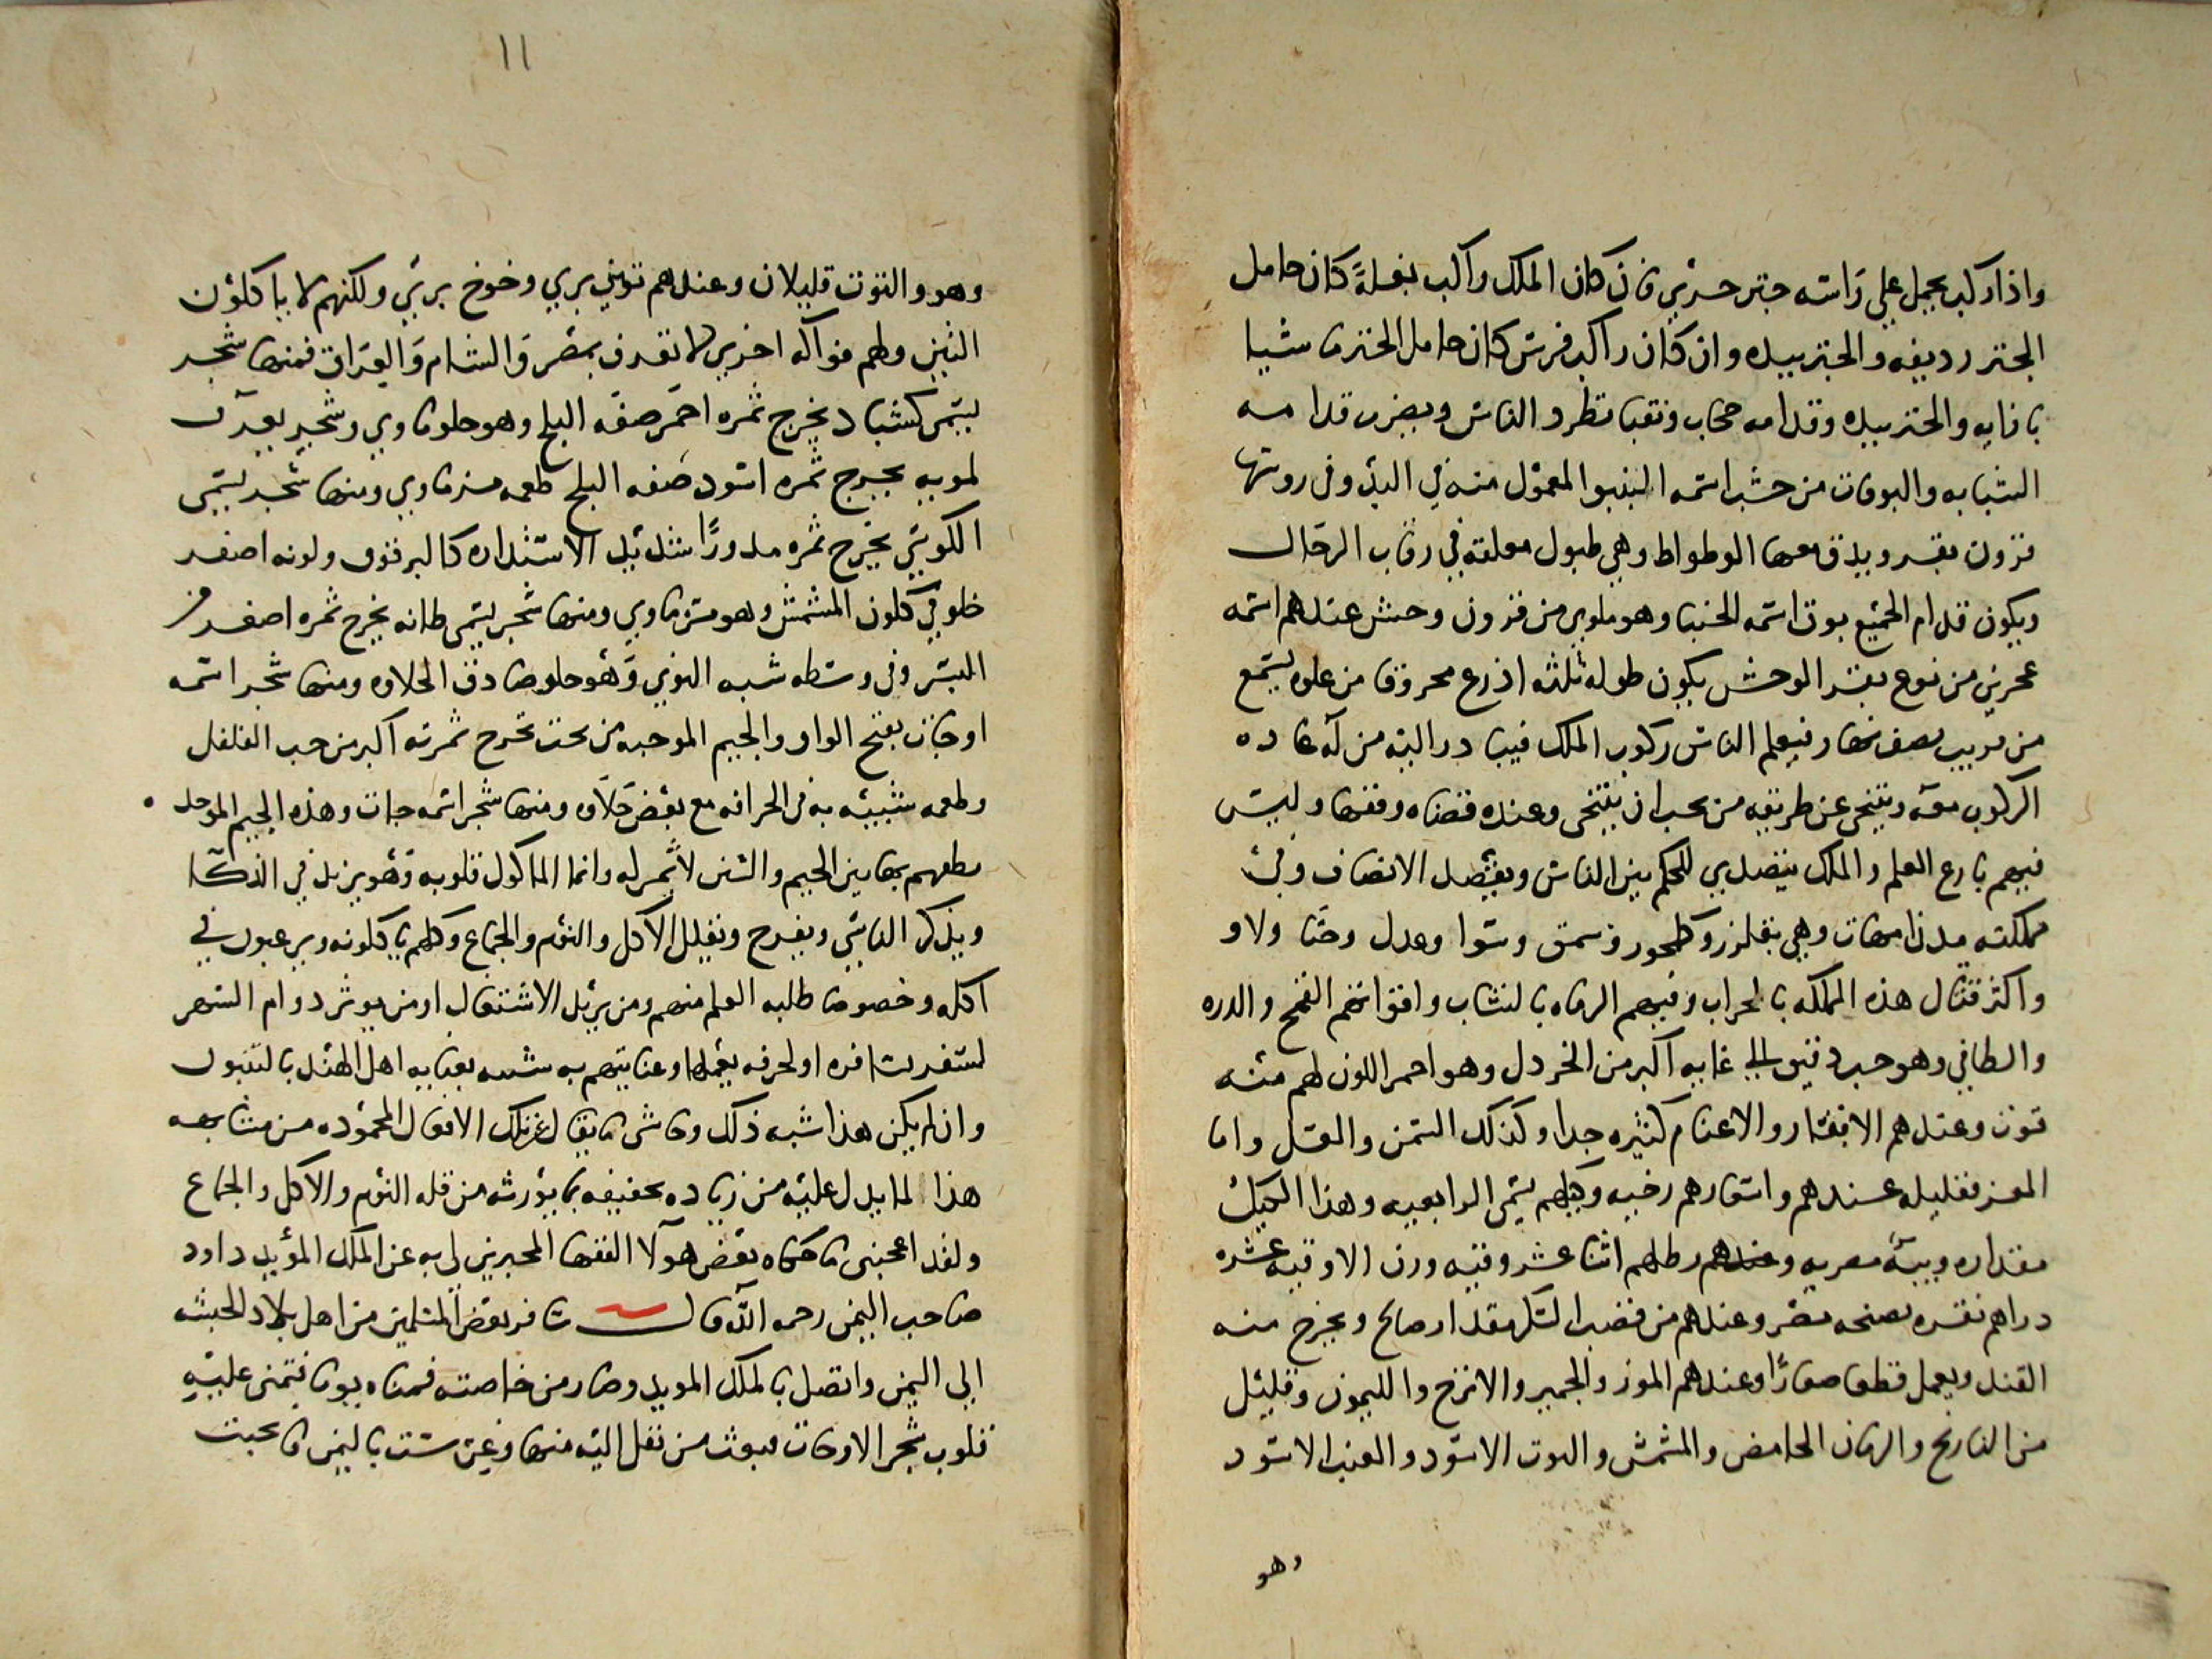 واذا ركب يحمل علي راسه جتر حرير فان كان الملك راكب بغلة كان حامل
الجتر رديفه والجتر بيده وان كان راكب فرس كان حامل الجتر ماشيا
بازايه والجتر بيده وقدامه حجاب ونقبا تطرد الناس ويضرب قدامه
الشبابه والبوقات من خشب اسمه البنبو المعمول منه في اليد وفي روسها
قرون بقر ويدق معها الوطواط وهي طبول معلقه في رقاب الرجال
ويكون قدام الجميع بوق اسمه الجنبا وهو ملوي من قرون وحش عندهم اسمه
عجرين من نوع بقر الوحش يكون طوله ثلثه اذرع محروق من علوه يسمع
من قريب نصف نهار فيعلم الناس ركوب الملك فيبادر اليه من له عاده
الركوب معه ويتنحى عن طريقه من يجب ان يتنحى وعنده قضاه وفقها وليس
فيهم بارع العلم والملك يتصدي للحكم بين الناس ويفصل الانصاف وفي
مملكته مدن امهات وهي بقلزر وكلجور وسمق وسوا وعدل وجبا ولاو
واكثر قتال هذه المملكه بالحراب وفيهم الرماه بالنشاب واقواتهم القمح والدره
والطافي وهو حب دقيق الي غايه اكبر من الخردل وهو احمر اللون لهم منه
قوت وعندهم الابقار والاغنام كثيره جدا وكذلك السمن والعسل واما
المعز فقليله عندهم واسعارهم رخيه وكيلهم يسمى الرابعيه وهذا الكيل
مقداره ويبه مصريه وعندهم رطلهم اثنا عشر وقيه وزن الاوقيه عشره
دراهم نقره بصنجه مصر وعندهم من قصب السكر مقدار صالح ويخرج منه
القند ويعمل قطعا صغارا وعندهم الموز والجمير والاترج والليمون وقليل
من النارنج والرمان الحامض والمشمش والتوت الاسود والعنب الاسود
وهو
١١
وهو والتوت قليلان وعندهم تين بري وخوخ بري ولكنهم لا ياكلون
التين ولهم فواكه اخري لا تعرف بمصر والشام والعراق فمنها شجر
يسمى كشباد يخرج ثمره احمر صفه البلح وهو حلو ماوي وشجر يعرف
لموبه يخرج ثمره اسود صفه البلح طعمه مز ماوي ومنها شجر يسمى
الكوشي يخرج ثمره مدورا شديد الاستداره كالبرقوق ولونه اصفر
خلوقي كلون المشمش وهو مز ماوي ومنها شجر يسمى طانه يخرج ثمره اصغر من
البسر وفي وسطه شبه النوي وهو حلو صادق الحلاوه ومنها شجر اسمه
اوجاق بفتح الواو والجيم الموحده من تحت تخرج ثمرته اكبر من حب الفلفل
وطعمه شبيه به في الحرافه مع بعض حلاوه ومنها شجر اسمه جات وهذه الجيم الموحده
نطقهم بها بين الجيم والشين لا ثمر له وانما الماكول قلوبه وهو يزيد في الذكا
ويذكر الناسي ويفرح ويقلل الاكل والنوم والجماع وكلهم ياكلونه ويرغبون في
اكله وخصوصا طلبه العلم منهم ومن يريد الاشتغال او من يوثر دوام السهر
لسفر يسافره او لحرفه يعملها وعنايتهم به شبه بعنايه اهل الهند بالتنبول
وان لم يكن هذا شبه ذلك وحاشى ما يقال عن تلك الافعال المحموده من مشابهه
هذا لما يدل عليه من زياده تجفيفه بما يورثه من قله النوم والاكل والجماع
ولقد اعجبني ما حكاه بعض هولا الفقها المخبرين لي به عن الملك المؤيد داود
صاحب اليمن رحمه الله قال سافر بعض المسلمين من اهل بلاد الحبشه
الي اليمن واتصل بالملك المويد وصار من خاصته فمناه يوما فتمنى عليه
قلوب شجر الاوجات فبعث من نقل اليه منها وغرست باليمن فانجبت